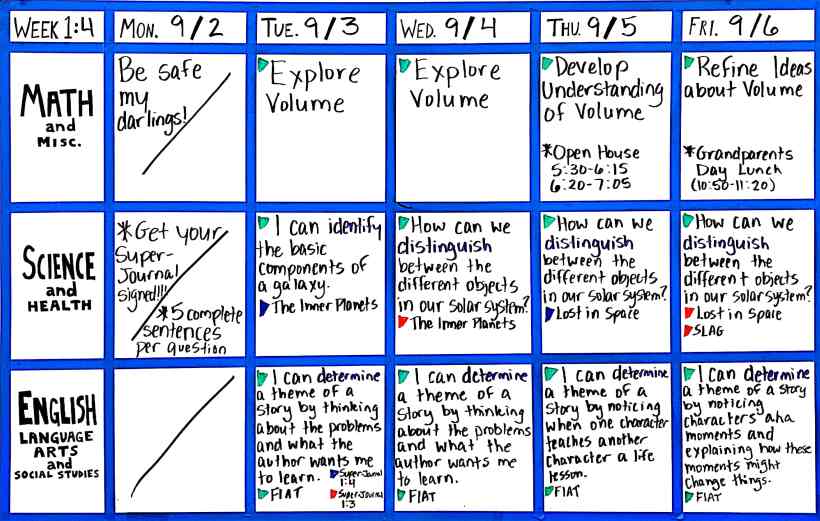 WEEK 1:4
MON. 9/2
TUE. 9/3
WED. 9/4
THU. 9/5
FRI. 9/6
MATH
and
MISC.
Be safe
my
darlings!
Explore
Volume
Explore
Volume
Develop
Understanding
of Volume
*Open House
5:30-6:15
6:20-7:05
Refine Ideas
about Volume
*Grandparents
Day Lunch
(10:50-11:20)
SCIENCE
and
HEALTH
*Get your
Super-
Journal
signed!!!!
*5 complete
sentences
per question
I can identify
the basic
components of
a galaxy.
The Inner Planets
How can we
distinguish
between the
different objects
in our solar system?
The Inner Planets
How can we
distinguish
between the
different objects
in our solar system?
Lost in Space
How can we
distinguish
between the
different objects
in our solar system?
Lost in Space
SLAG
ENGLISH
LANGUAGE
ARTS
and
SOCIAL STUDIES
I can determine
a theme of a
story by thinking
about the problems
and what the
author wants me
to learn.
Super-Journal
1:4
FIAT
Super-Journal
1:3
I can determine
a theme of a
story by thinking
about the problems
and what the
author wants me
to learn.
FIAT
I can determine
a theme of a
story by noticing
when one character
teaches another
character a life
lesson.
FIAT
I can determine
a theme of a story
by noticing
characters aha
moments and
explaining how these
moments might
change things.
FIAT